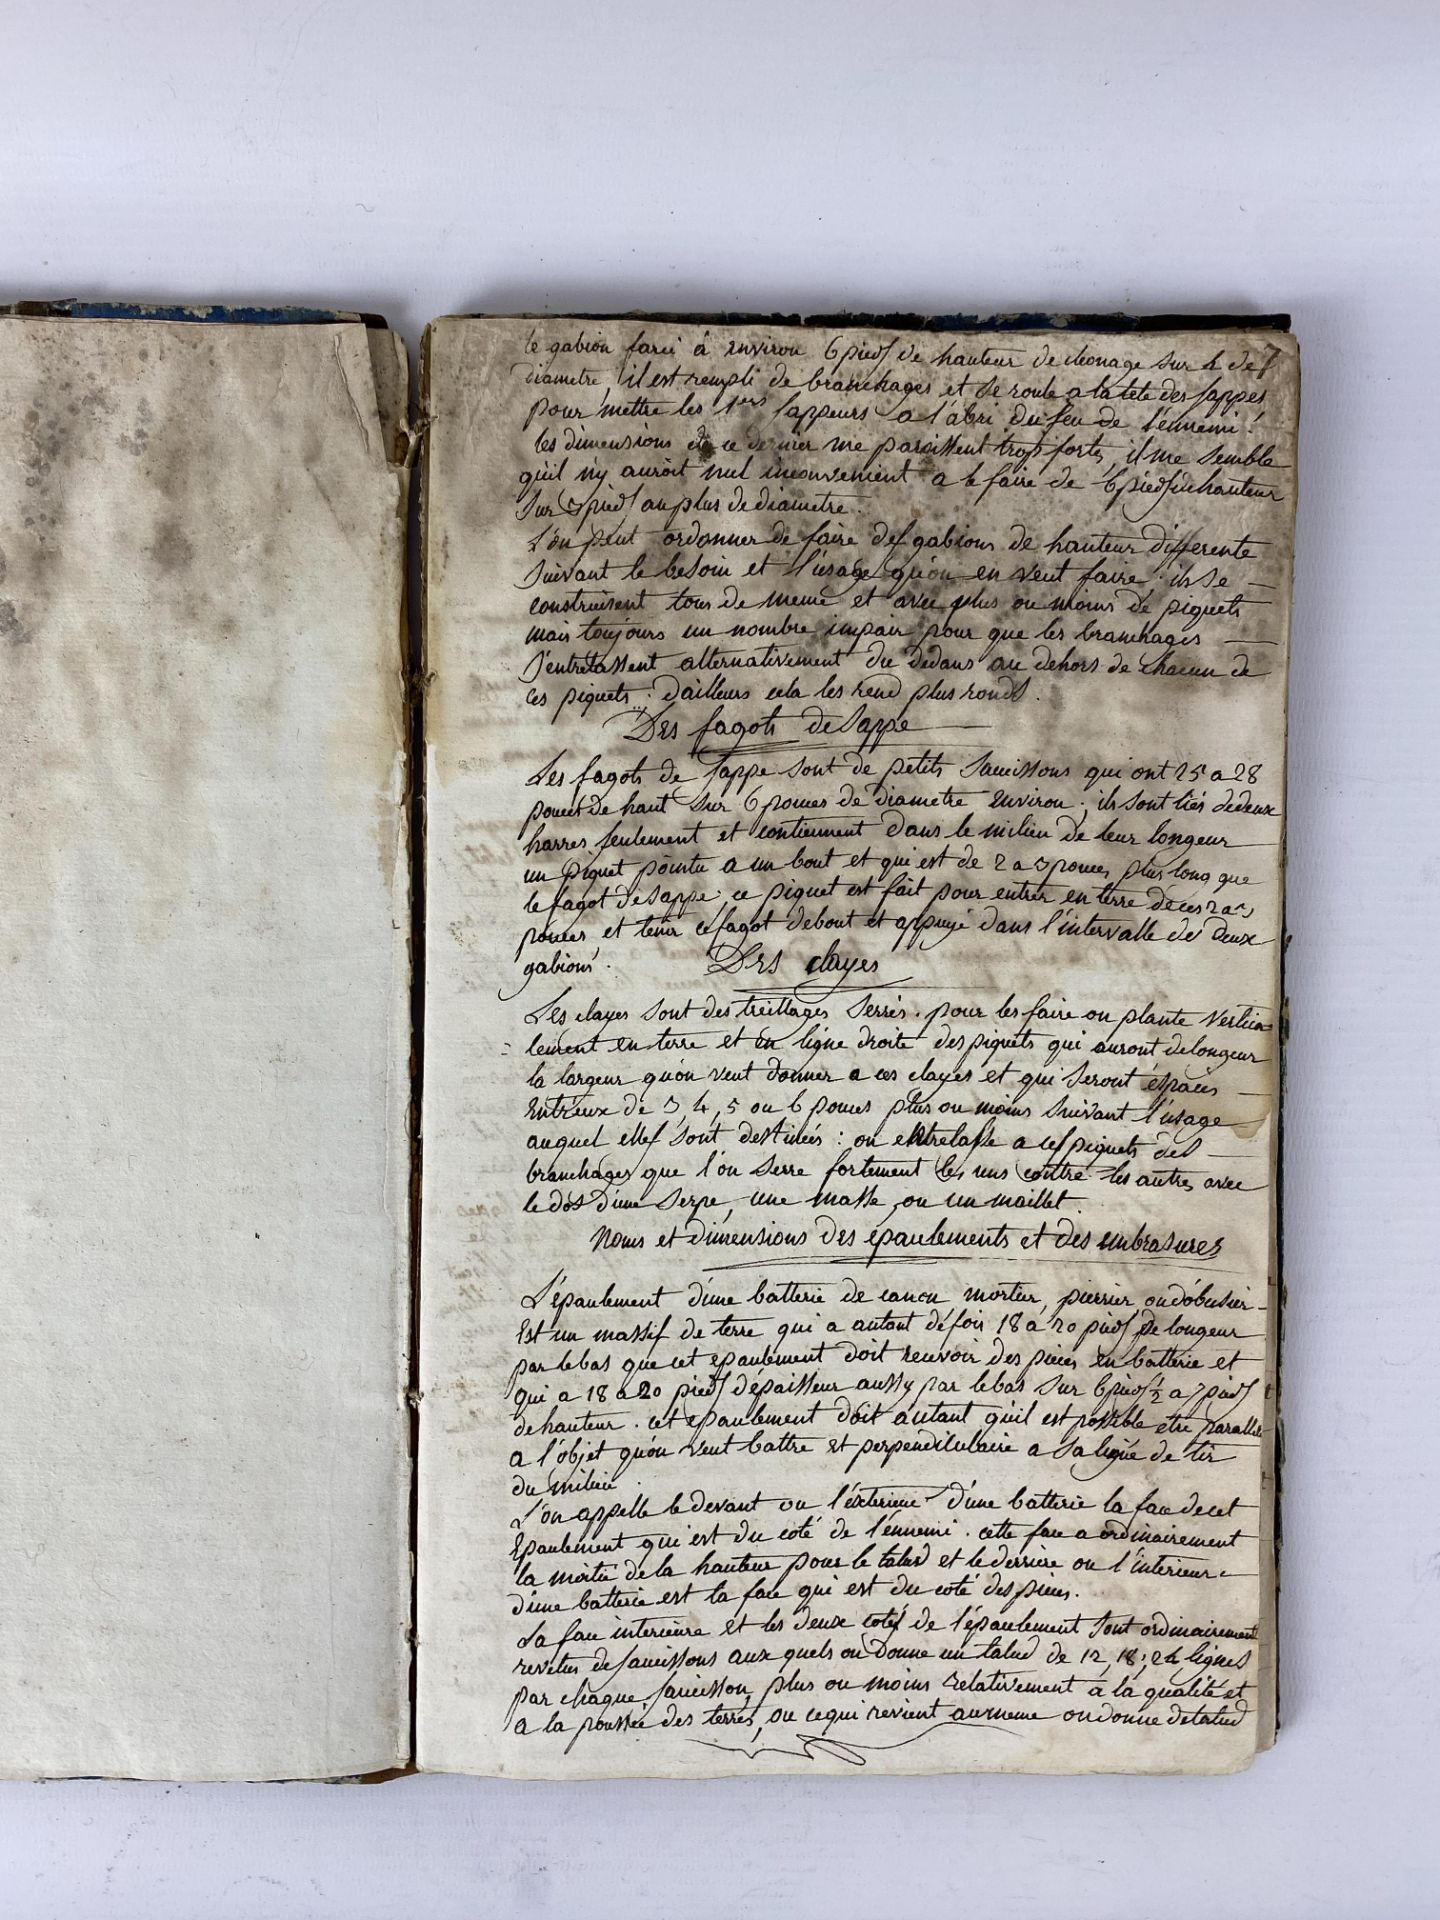 7
le gabion farci à environ 6 pieds de hauteur de cleonage sur 4 de
diametre, il est rempli de branchages et se roule a la tete des sappes
pour mettre les 1ers sappeurs a l'abri du feu de l'ennemi.
les dimensions de ce dernier me paroissent trop fortes, il me semble
qu'il n'y auroit nul inconvenient a le faire de 6 pieds de hauteur
sur 3 pieds au plus de diametre.
L'on peut ordonner de faire des gabions de hauteur differente
suivant le besoin et l'usage qu'on en veut faire; ils se
construisent tous de meme et avec plus ou moins de piquets
mais toujours un nombre impair pour que les branchages
s'entrelassent alternativement du dedans au dehors de chacun de
ces piquets. d'ailleurs cela les rend plus ronds.
Des fagots de sappe
Les fagots de sappe sont de petits saucissons qui ont 25 a 28
pouces de haut sur 6 pouces de diametre environ; ils sont liés de deux
harres seulement et contiennent dans le milieu de leur longeur
un piquet pointu a un bout et qui est de 2 a 3 pouces plus long que
le fagot de sappe; ce piquet est fait pour entrer en terre de ces 2 a 3
pouces, et tenir ce fagot debout et appuyé dans l'intervalle de deux
gabions.
Des clayes
Les clayes sont des treillages serrés. pour les faire on plante vertica
=lement en terre et en ligne droite des piquets qui auront de longeur
la largeur qu'on veut donner a ces clayes et qui seront éspacés
entr'eux de 3, 4, 5 ou 6 pouces plus ou moins suivant l'usage
auquel elles sont destinées: on entrelasse a ces piquets des
branchages que l'on serre fortement les uns contre les autres avec
le dos d'une serpe, une masse, ou un maillet.
Noms et dimensions des épaulements et des embrasures
L'épaulement d'une batterie de canon mortier, pierrier, ou d'obusier
Est un massif de terre qui a autant de fois 18 a 20 pieds de longeur
par le bas que cet epaulement doit recevoir des pieces en batterie et
qui a 18 a 20 pieds d'épaisseur aussy par le bas sur 6 pieds ½ a 7 pieds
de hauteur. cet epaulement doit autant qu'il est possible etre parallele
a l'objet qu'on veut battre et perpendiculaire a sa ligne de tir
du milieu.
L'on appelle le devant ou l'éxterieur d'une batterie la face de cet
Epaulement qui est du coté de l'énnemi. cette face a ordinairement
la moitié de la hauteur pour le talud et le derriere ou l'interieur
d'une batterie est la face qui est du coté des pieces.
La face interieure et les deux cotés de l'épaulement sont ordinairement
revetus de saucissons aux quels on donne un talud de 12, 18, 24 lignes
par chaque saucisson, plus ou moins relativement a la qualité et
a la poussée des terres, ou ce qui revient au meme on donne de talud